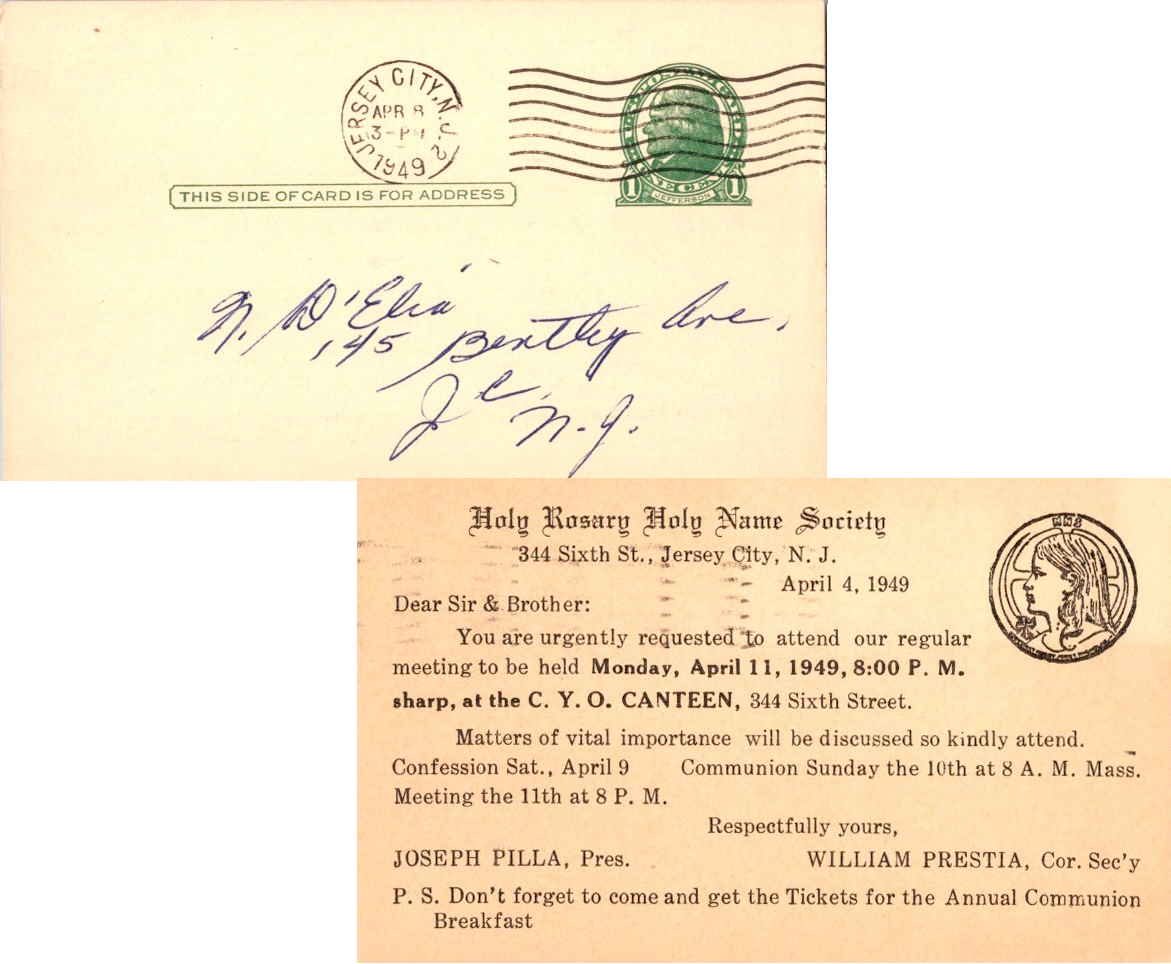 JERSEY CITY, N.J. 2
APR 8
3 - PM
1949
U.S. POSTAL CARD
1 ONE CENT 1
JEFFERSON
THIS SIDE OF CARD IS FOR ADDRESS
N. D'Elia
145 Bentley Ave.
J C.
N.J.
Holy Rosary Holy Name Society
344 Sixth St., Jersey City, N. J.
April 4, 1949
HNS
Dear Sir & Brother:
You are urgently requested to attend our regular
meeting to be held Monday, April 11, 1949, 8:00 P. M.
sharp, at the C. Y. O. CANTEEN, 344 Sixth Street.
Matters of vital importance will be discussed so kindly attend.
Confession Sat., April 9 Communion Sunday the 10th at 8 A. M. Mass.
Meeting the 11th at 8 P. M.
Respectfully yours,
JOSEPH PILLA, Pres. WILLIAM PRESTIA, Cor. Sec'y
P. S. Don't forget to come and get the Tickets for the Annual Communion
Breakfast